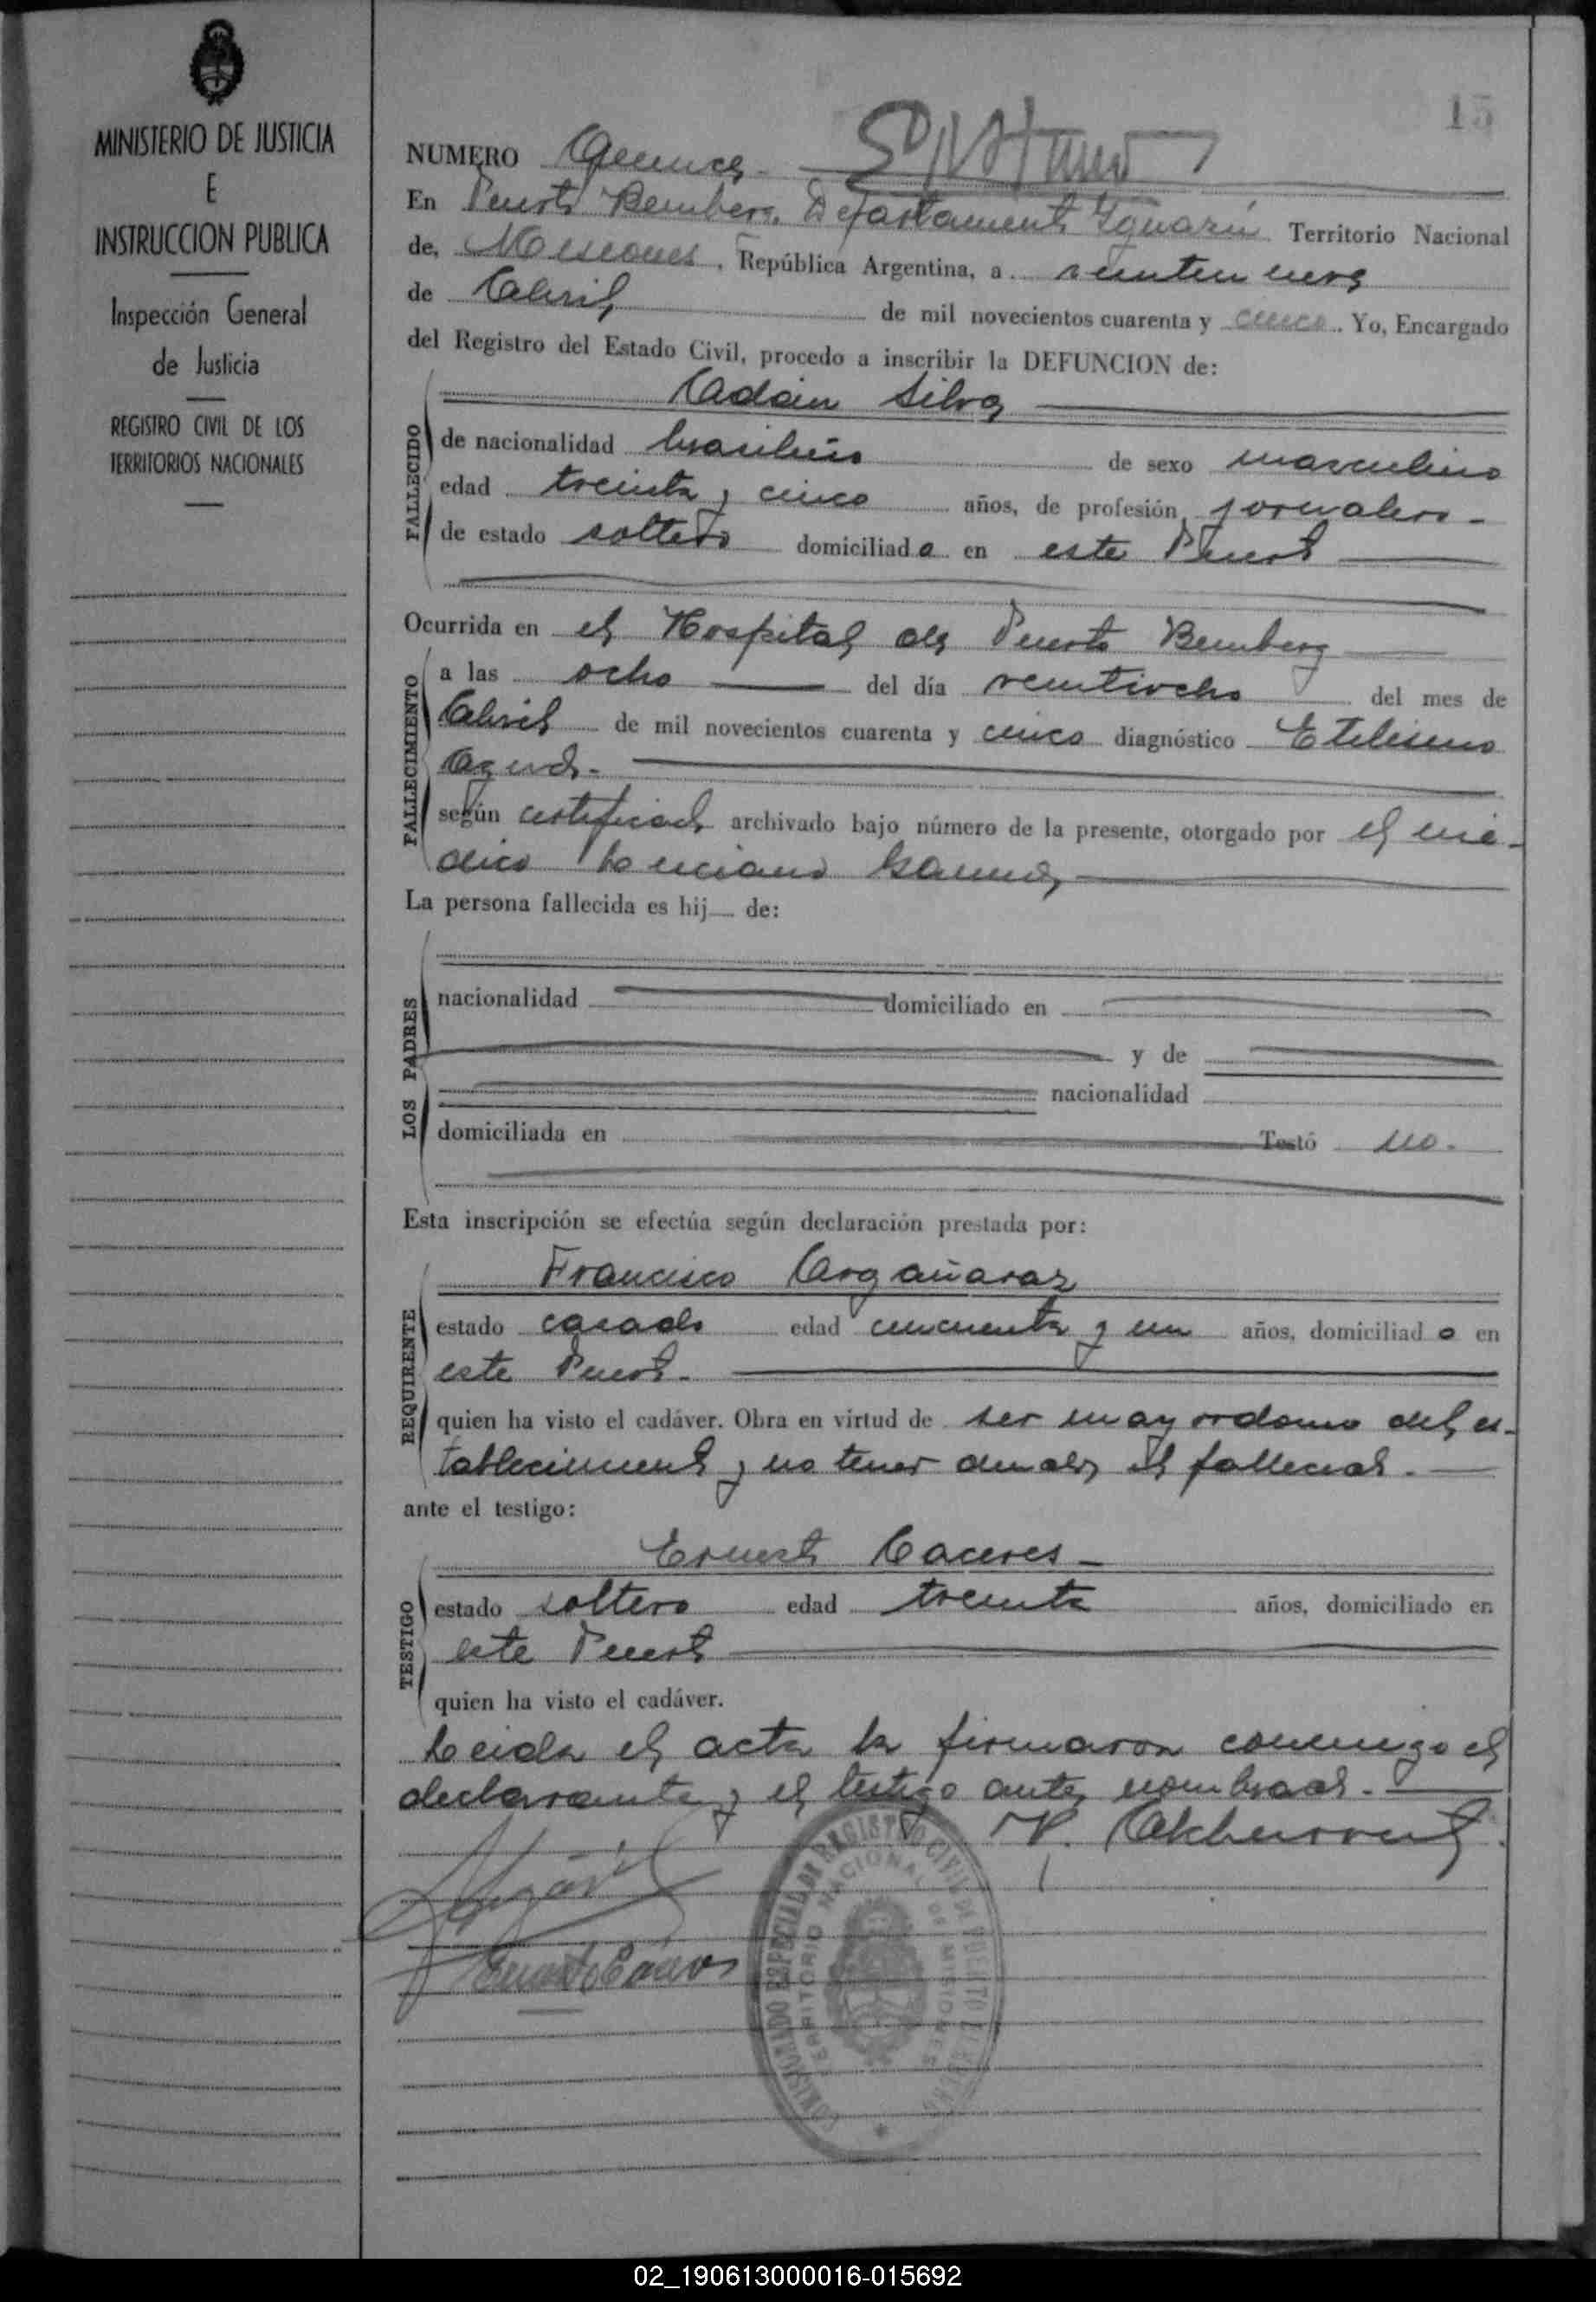 15
MINISTERIO DE JUSTICIA
E
INSTRUCCION PUBLICA
Inspección General
de Justicia
REGISTRO CIVIL DE LOS
TERRITORIOS NACIONALES
NUMERO Quince
En Puerto Bemberg, Departamento Iguazú Territorio Nacional
de, Misiones, República Argentina, a veintinueve
de Abril de mil novecientos cuarenta y cinco. Yo, Encargado
del Registro del Estado Civil, procedo a inscribir la DEFUNCION de:
Adán Silva
FALLECIDO
de nacionalidad brasileño de sexo masculino
edad treinta y cinco años, de profesión jornalero-
de estado soltero domiciliado en este Puerto
Ocurrida en el Hospital de Puerto Bemberg
FALLECIMIENTO
a las ocho del día veintiocho del mes de
Abril de mil novecientos cuarenta y cinco diagnóstico Etilismo
Agudo.-
según certificado archivado bajo número de la presente, otorgado por el mé-
dico Luciano
La persona fallecida es hij de:
LOS PADRES
nacionalidad domiciliado en
y de
nacionalidad
domiciliada en Testó no.
Esta inscripción se efectúa según declaración prestada por:
Francisco Argañaraz
REQUIRENTE
estado casado edad cincuenta y un años, domiciliado en
este Puerto.
quien ha visto el cadáver. Obra en virtud de ser mayordomo del es-
tablecimiento y no tener deudos el fallecido.
ante el testigo:
Ernesto Caceres-
TESTIGO
estado soltero edad treinta años, domiciliado en
este Puerto
quien ha visto el cadáver.
Leida el acta la firmaron conmigo el
declarante y el testigo antes nombrado.
Ernesto Cáceres
REGISTRO CIVIL DE PUERTO
TERRITORIO NACIONAL DE MISIONES
02_190613000016-015692